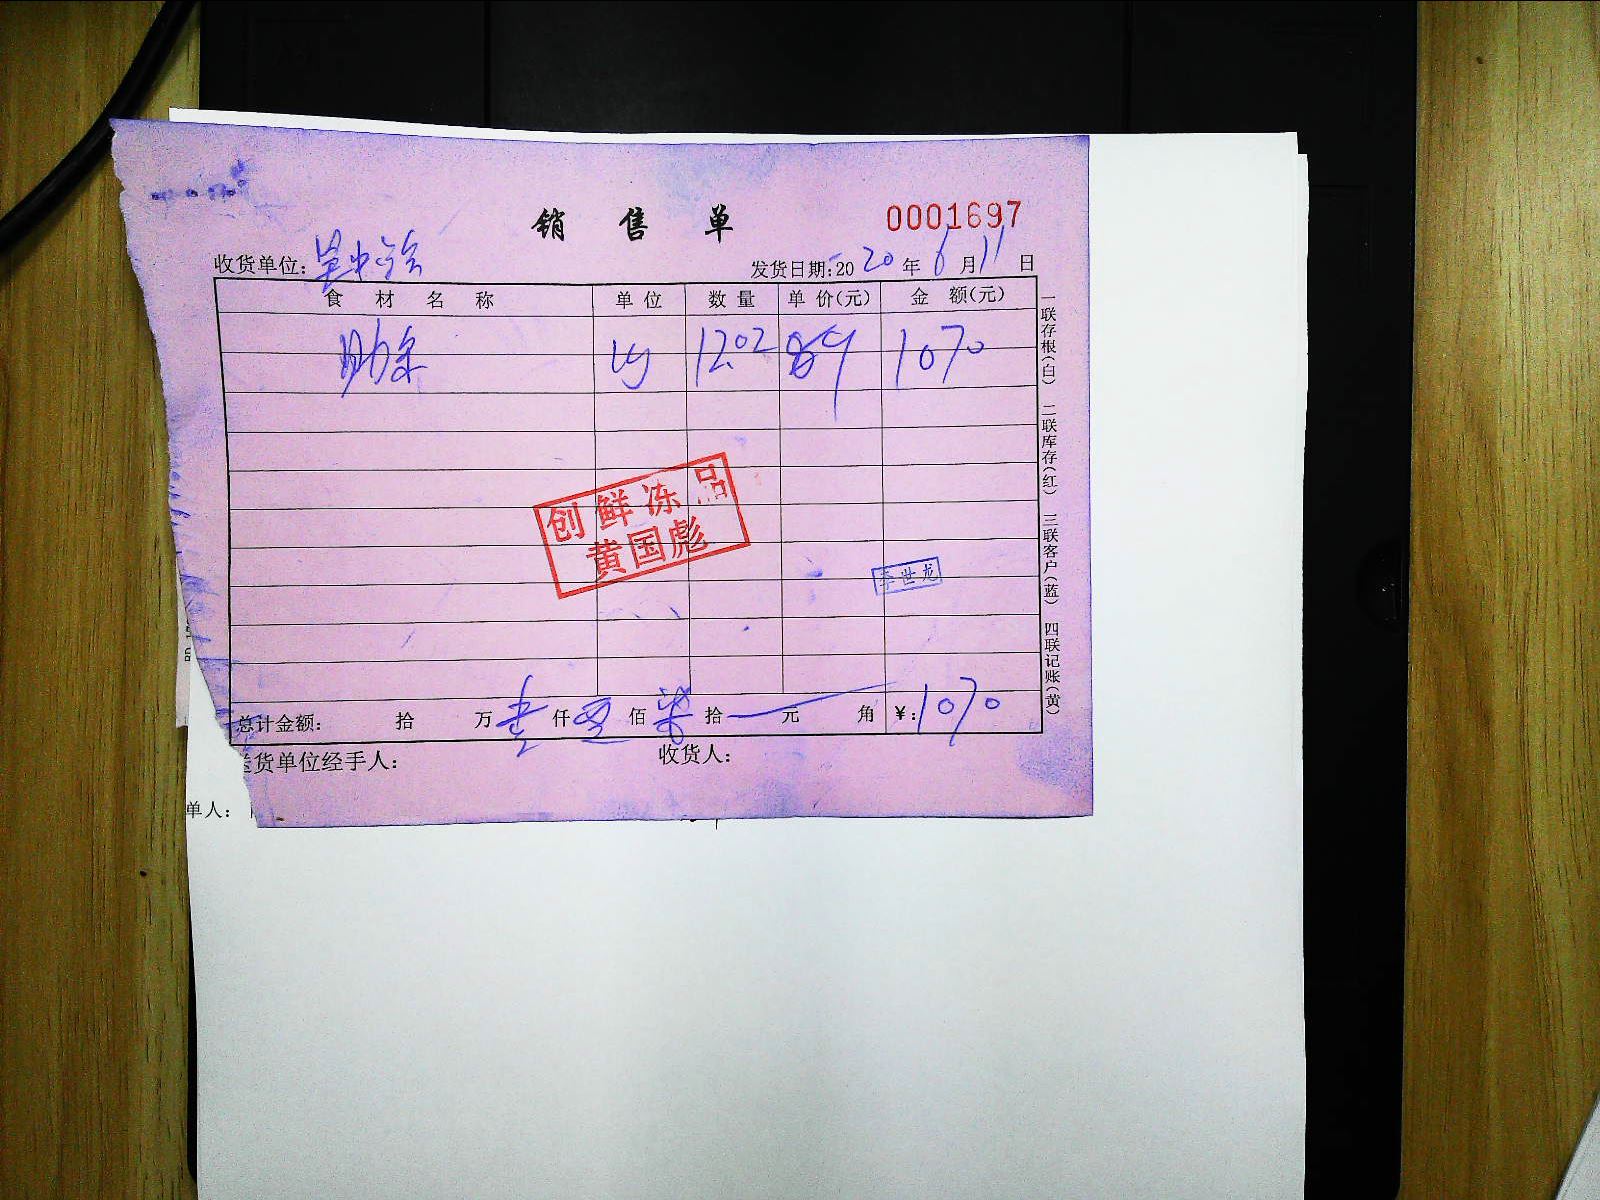 销售单
0001697
收货单位:
发货日期:2020年6月11日
食材名称 单位 数量 单价(元) 金额(元)
肋条 12.02 89 1070
创鲜冻品
黄国彪
李世龙
总计金额: 拾 万 壹仟 零佰 柒拾 元 角 ¥:1070
货单位经手人: 收货人:
一联存根(白) 二联库存(红) 三联客户(蓝) 四联记账(黄)
单人: